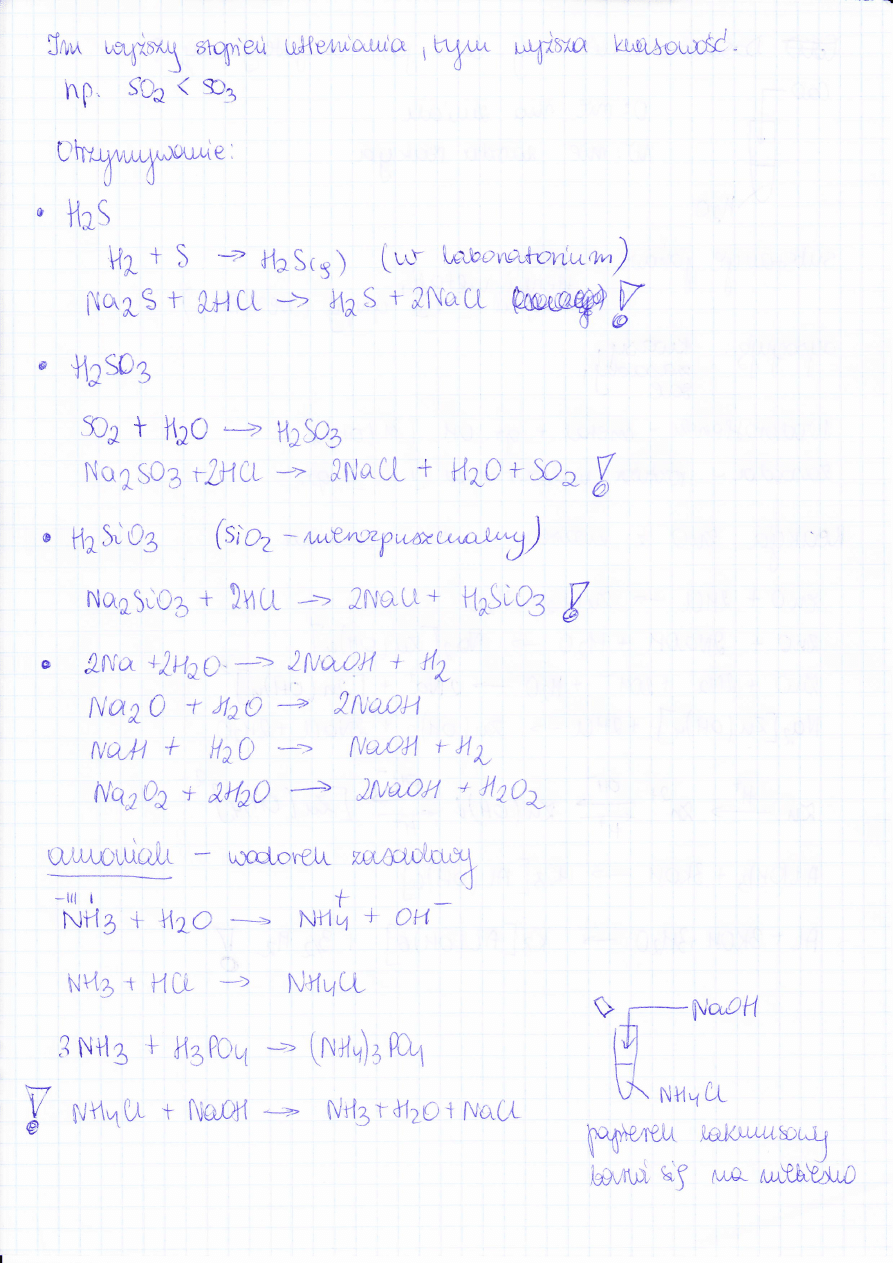 Im wyższy stopień utleniania, tym wyższa kwasowość.
np. SO₂ < SO₃
Otrzymywanie:
• H₂S
H₂ + S → H₂S(g) (w laboratorium)
Na₂S + 2HCl → H₂S + 2NaCl !
• H₂SO₃
SO₂ + H₂O → H₂SO₃
Na₂SO₃ + 2HCl → 2NaCl + H₂O + SO₂ !
• H₂SiO₃ (SiO₂ – nierozpuszczalny)
Na₂SiO₃ + 2HCl → 2NaCl + H₂SiO₃ !
• 2Na + 2H₂O → 2NaOH + H₂
Na₂O + H₂O → 2NaOH
NaH + H₂O → NaOH + H₂
Na₂O₂ + 2H₂O → 2NaOH + H₂O₂
amoniak – wodorek zasadowy
-III I
NH₃ + H₂O → NH₄⁺ + OH⁻
NH₃ + HCl → NH₄Cl
3NH₃ + H₃PO₄ → (NH₄)₃PO₄
! NH₄Cl + NaOH → NH₃ + H₂O + NaCl
NaOH
NH₄Cl
papierek lakmusowy
barwi się na niebiesko